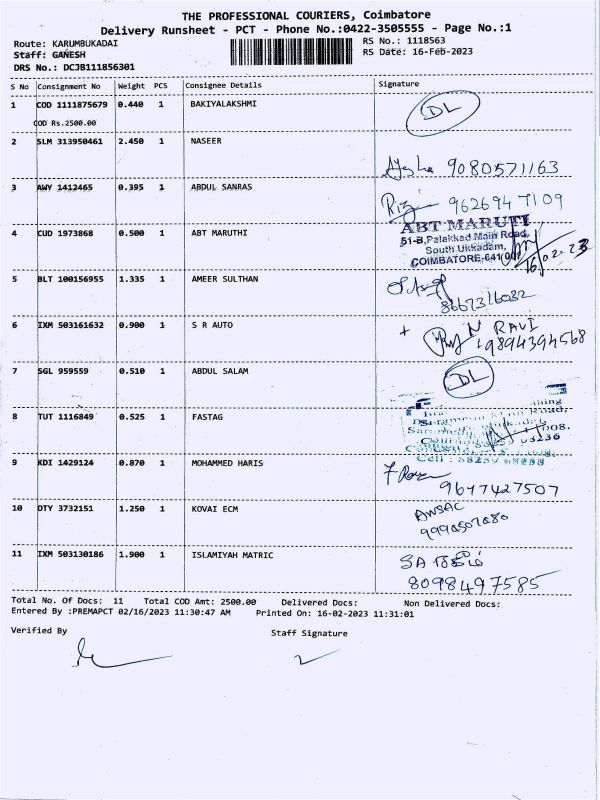 THE PROFESSIONAL COURIERS, Coimbatore
Delivery Runsheet - PCT - Phone No.:0422-3505555 - Page No.:1
Route: KARUMBUKADAI RS No.: 1118563
Staff: GANESH RS Date: 16-Feb-2023
DRS No.: DCJB111856301
S No Consignment No Weight PCS Consignee Details Signature
1 COD 1111875679 0.440 1 BAKIYALAKSHMI DL
COD Rs.2500.00
2 SLM 313950461 2.450 1 NASEER
Ayisha 9080571163
3 AWY 1412465 0.395 1 ABDUL SANRAS
9626947109
4 CUD 1973868 0.500 1 ABT MARUTHI
ABT MARUTI
51-B,Palakkad Main Road,
South Ukkadam,
COIMBATORE-641 001
16/02-23
5 BLT 100156955 1.335 1 AMEER SULTHAN
8667316032
6 IXM 503161632 0.900 1 S R AUTO
N RAVI
9894394568
7 SGL 959559 0.510 1 ABDUL SALAM DL
8 TUT 1116849 0.525 1 FASTAG
Road,
Cell :
9 KDI 1429124 0.870 1 MOHAMMED HARIS
9647427507
10 OTY 3732151 1.250 1 KOVAI ECM
ANSAC
11 IXM 503130186 1.900 1 ISLAMIYAH MATRIC
8098497585
Total No. Of Docs: 11 Total COD Amt: 2500.00 Delivered Docs: Non Delivered Docs:
Entered By :PREMAPCT 02/16/2023 11:30:47 AM Printed On: 16-02-2023 11:31:01
Verified By Staff Signature